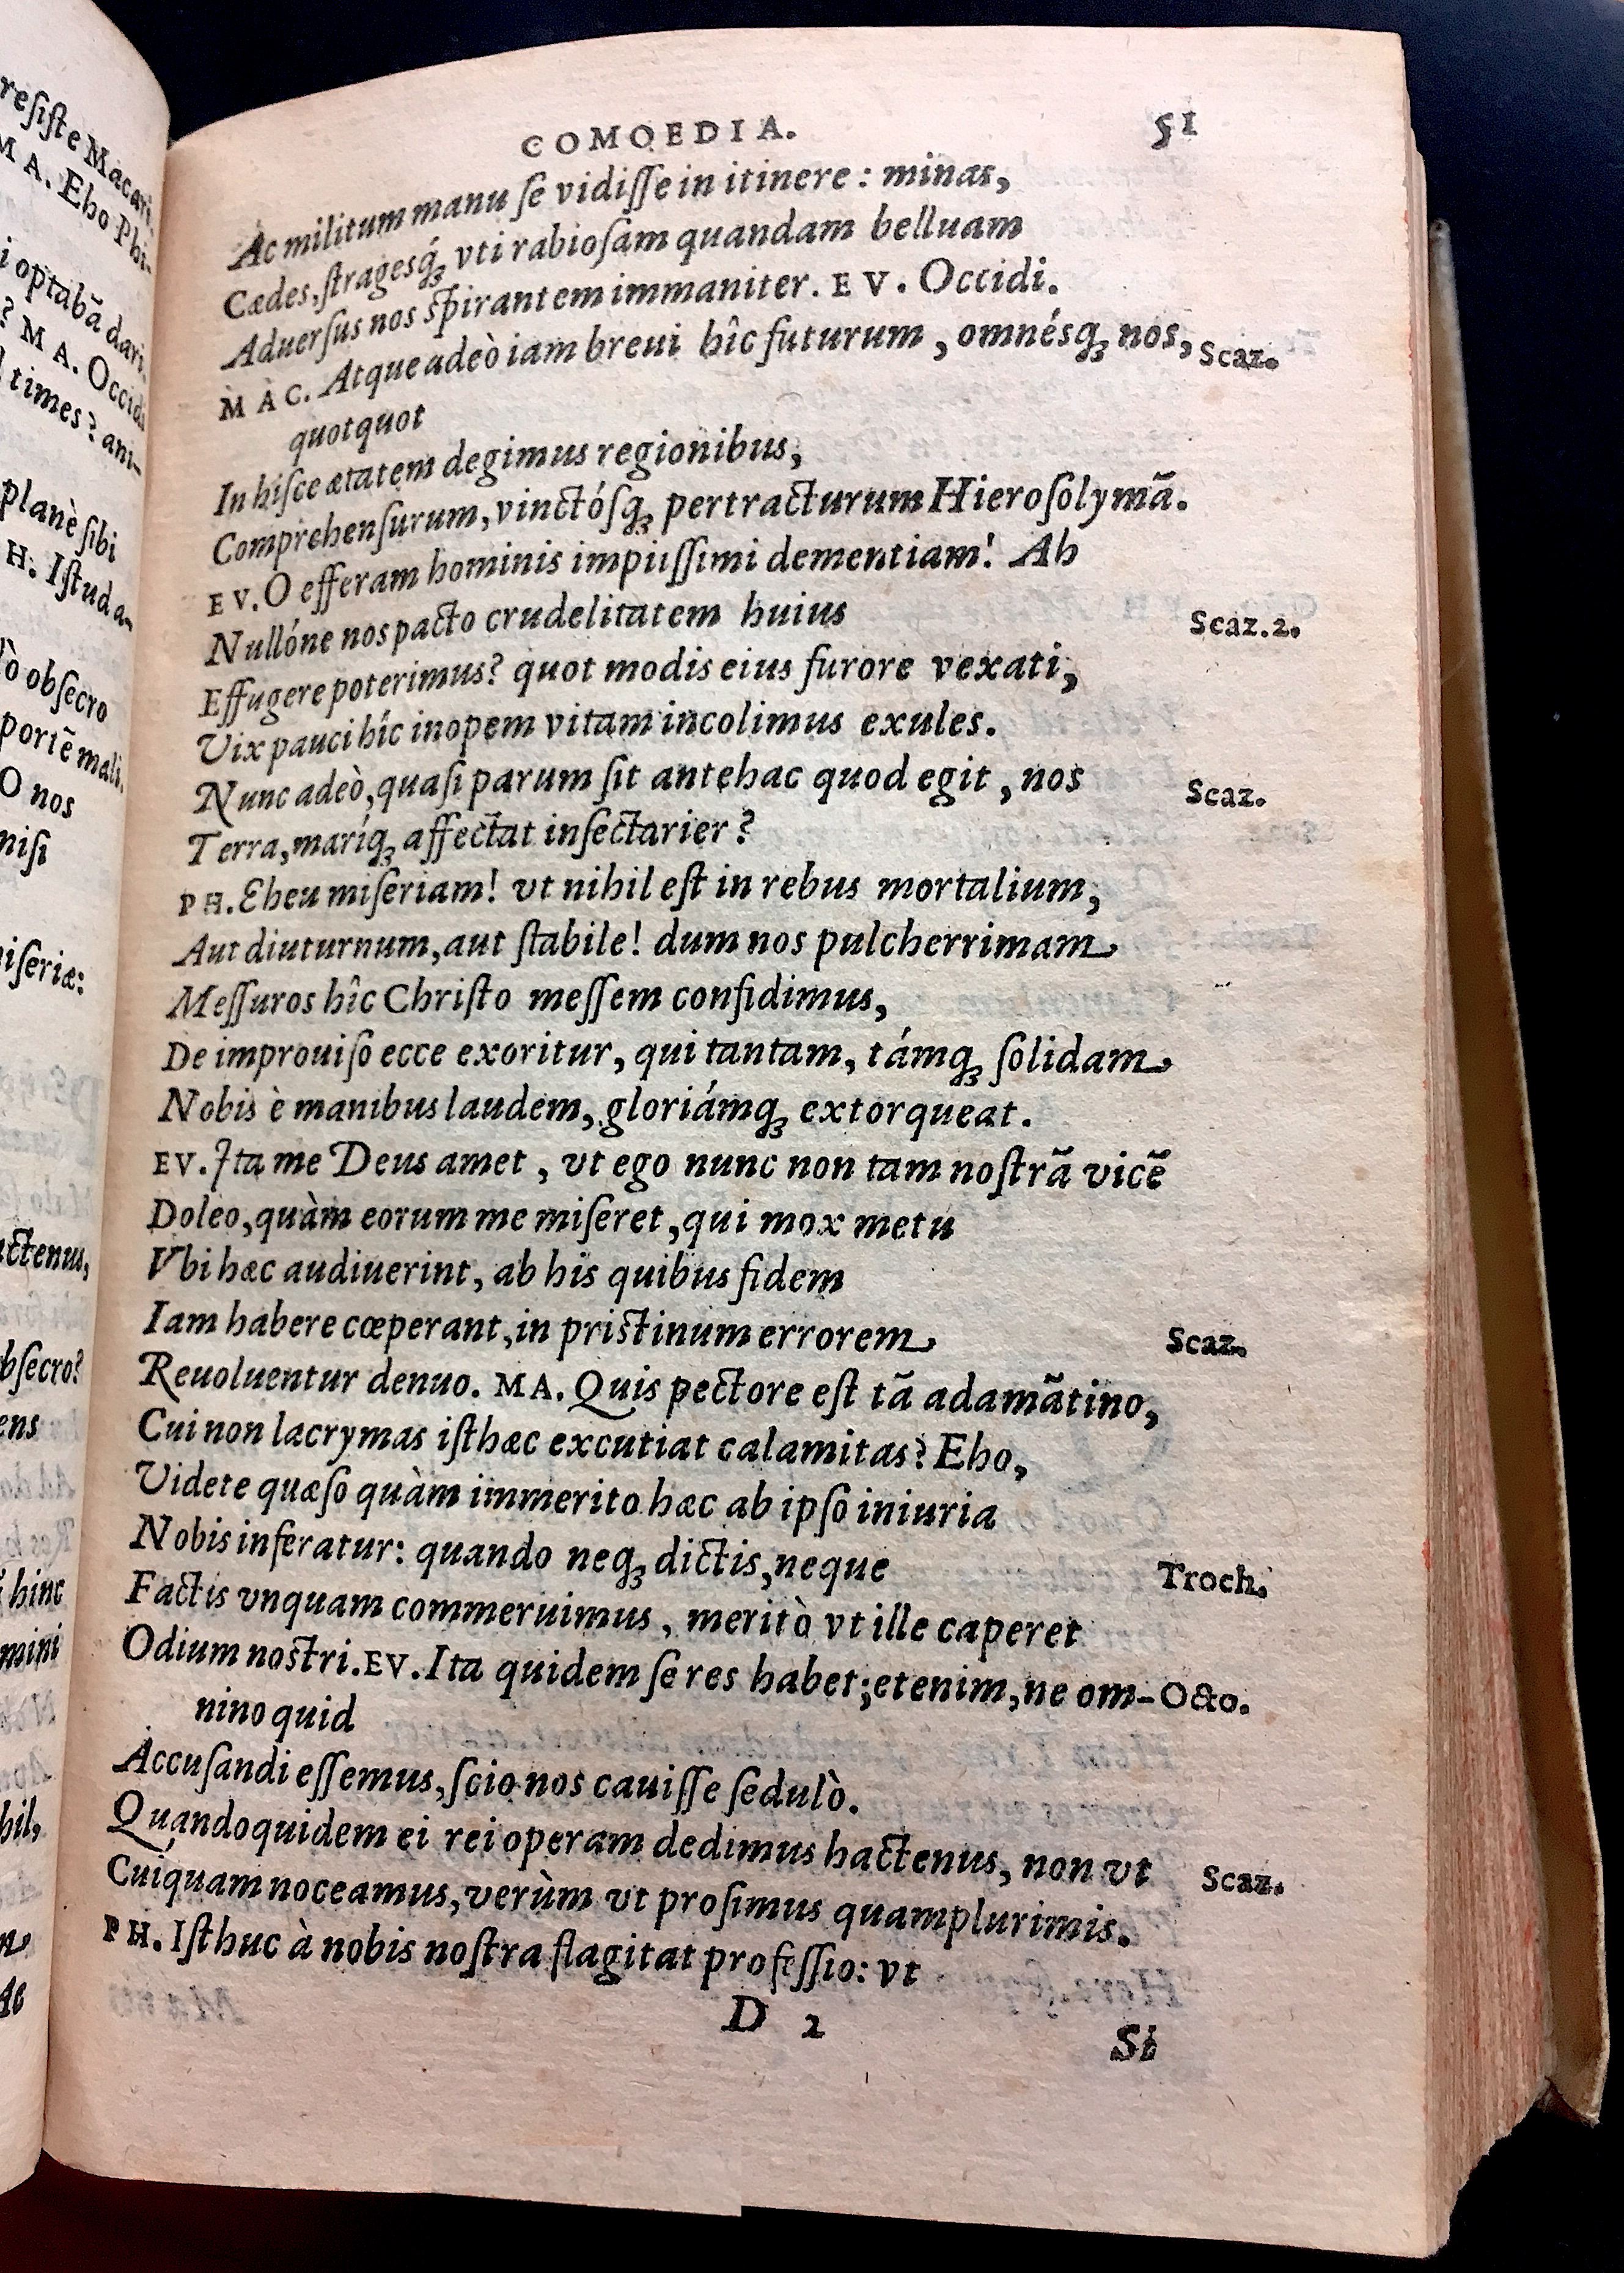 resiste Macari.
MA. Eho Phi-
i optabā dari.
? MA. Occidi
times? ani-
planè sibi
H. Istud a-
obsecro
portē mali.
O nos
nisi
iseriæ:
actenus,
bsecro?
ens
hinc
mini
hil,
COMOEDIA. 51
Ac militum manu se vidisse in itinere: minas,
Cædes, stragesq́ꝫ vti rabiosam quandam belluam
Aduersus nos spirantem immaniter. EV. Occidi.
MAC. Atque adeò iam breui hîc futurum, omnésqꝫ nos, Scaz.
quotquot
In hisce ætatem degimus regionibus,
Comprehensurum, vinctósqꝫ pertracturum Hierosolymā.
EV. O efferam hominis impiissimi dementiam! Ah
Nullóne nos pacto crudelitatem huius Scaz.2.
Effugere poterimus? quot modis eius furore vexati,
Vix pauci hîc inopem vitam incolimus exules.
Nunc adeò, quasi parum sit antehac quod egit, nos Scaz.
Terra, maríqꝫ affectat insectarier?
PH. Eheu miseriam! vt nihil est in rebus mortalium,
Aut diuturnum, aut stabile! dum nos pulcherrimam
Messuros hîc Christo messem confidimus,
De improuiso ecce exoritur, qui tantam, támqꝫ solidam
Nobis è manibus laudem, gloriámqꝫ extorqueat.
EV. Ita me Deus amet, vt ego nunc non tam nostrā vicē
Doleo, quàm eorum me miseret, qui mox metu
Vbi hæc audiuerint, ab his quibus fidem
Iam habere cœperant, in pristinum errorem Scaz.
Reuoluentur denuo. MA. Quis pectore est tā adamātino,
Cui non lacrymas isthæc excutiat calamitas? Eho,
Videte quæso quàm immerito hæc ab ipso iniuria
Nobis inferatur: quando neqꝫ dictis, neque Troch.
Factis vnquam commeruimus, meritò vt ille caperet
Odium nostri. EV. Ita quidem se res habet; etenim, ne om- Octo.
nino quid
Accusandi essemus, scio nos cauisse sedulò.
Quandoquidem ei rei operam dedimus hactenus, non vt Scaz.
Cuiquam noceamus, verùm vt prosimus quamplurimis.
PH. Isthuc à nobis nostra flagitat professio: vt
D 2
Si